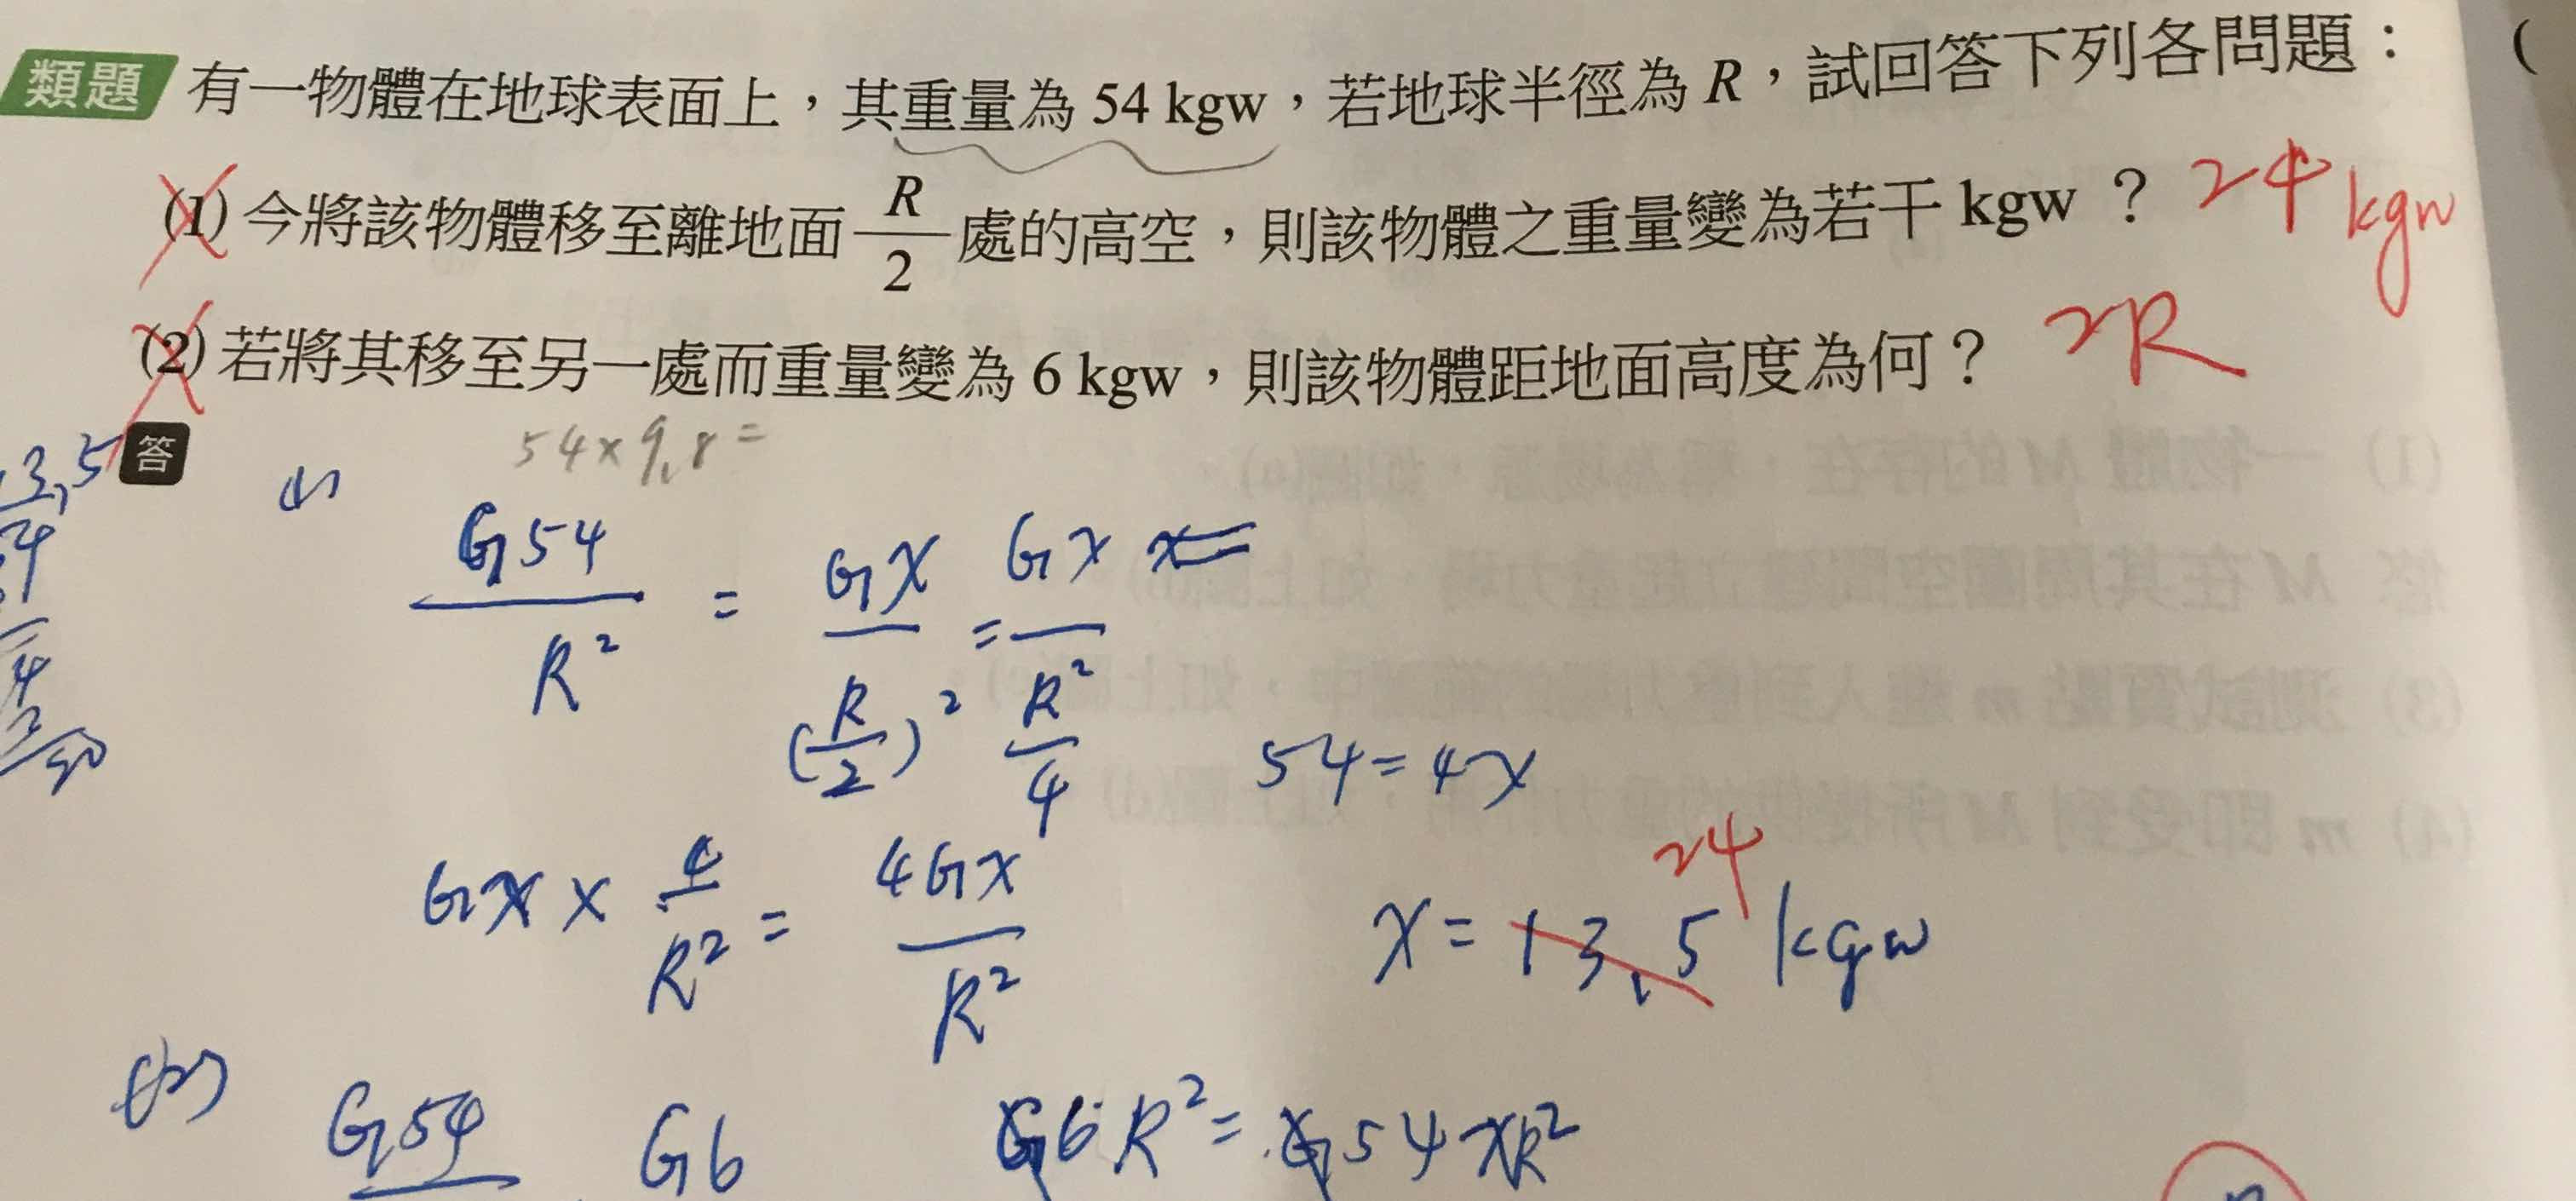 類題 有一物體在地球表面上，其重量為 54 kgw，若地球半徑為 R，試回答下列各問題：
(1) 今將該物體移至離地面 R/2 處的高空，則該物體之重量變為若干 kgw ？ 24 kgw
(2) 若將其移至另一處而重量變為 6 kgw，則該物體距地面高度為何？ 2R
答
54×9.8=
(1)
G54/R² = GX/(R/2)² = GX/(R²/4)
54=4X
GX × 4/R² = 4GX/R²
24
X = 13.5 kgw
(2)
G54
G6
G6R² = G54XR²
3.5